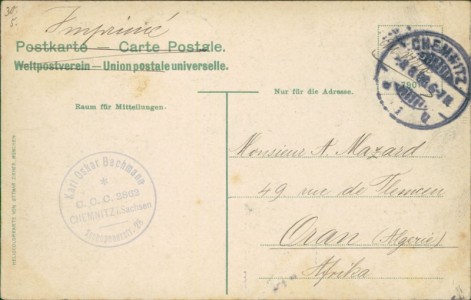 30.
5.
Imprimé
Postkarte — Carte Postale.
Weltpostverein — Union postale universelle.
Raum für Mitteilungen.
Nur für die Adresse.
CHEMNITZ
Karl Oskar Bachmann
C. C. C. 2962
CHEMNITZ i. Sachsen
Monsieur A. Mazard
49 rue de Tlemcen
Oran (Algerie)
Afrika